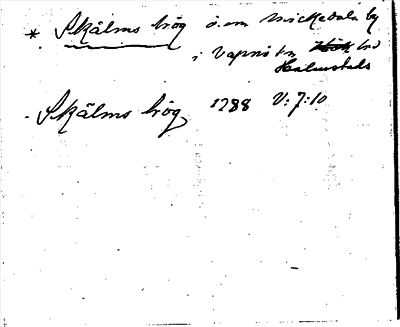 * Skälms hög ö. om Mickedala by
i Vapnö sn Hök hd
Halmstads
Skälms hög 1288 V:7:10